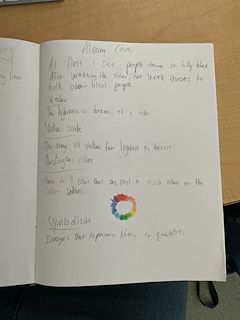 Album Cover
At first I see people down to fully blind
After watching the video, not work means to
talk about black people.
Value
The lightness or darkness of a color
Value scale
The range of values for lightest to darkest
Analogous colors
three to 4 colors that are next to each other on the
Color wheel
Symbolism
Images that represent ideas or qualities